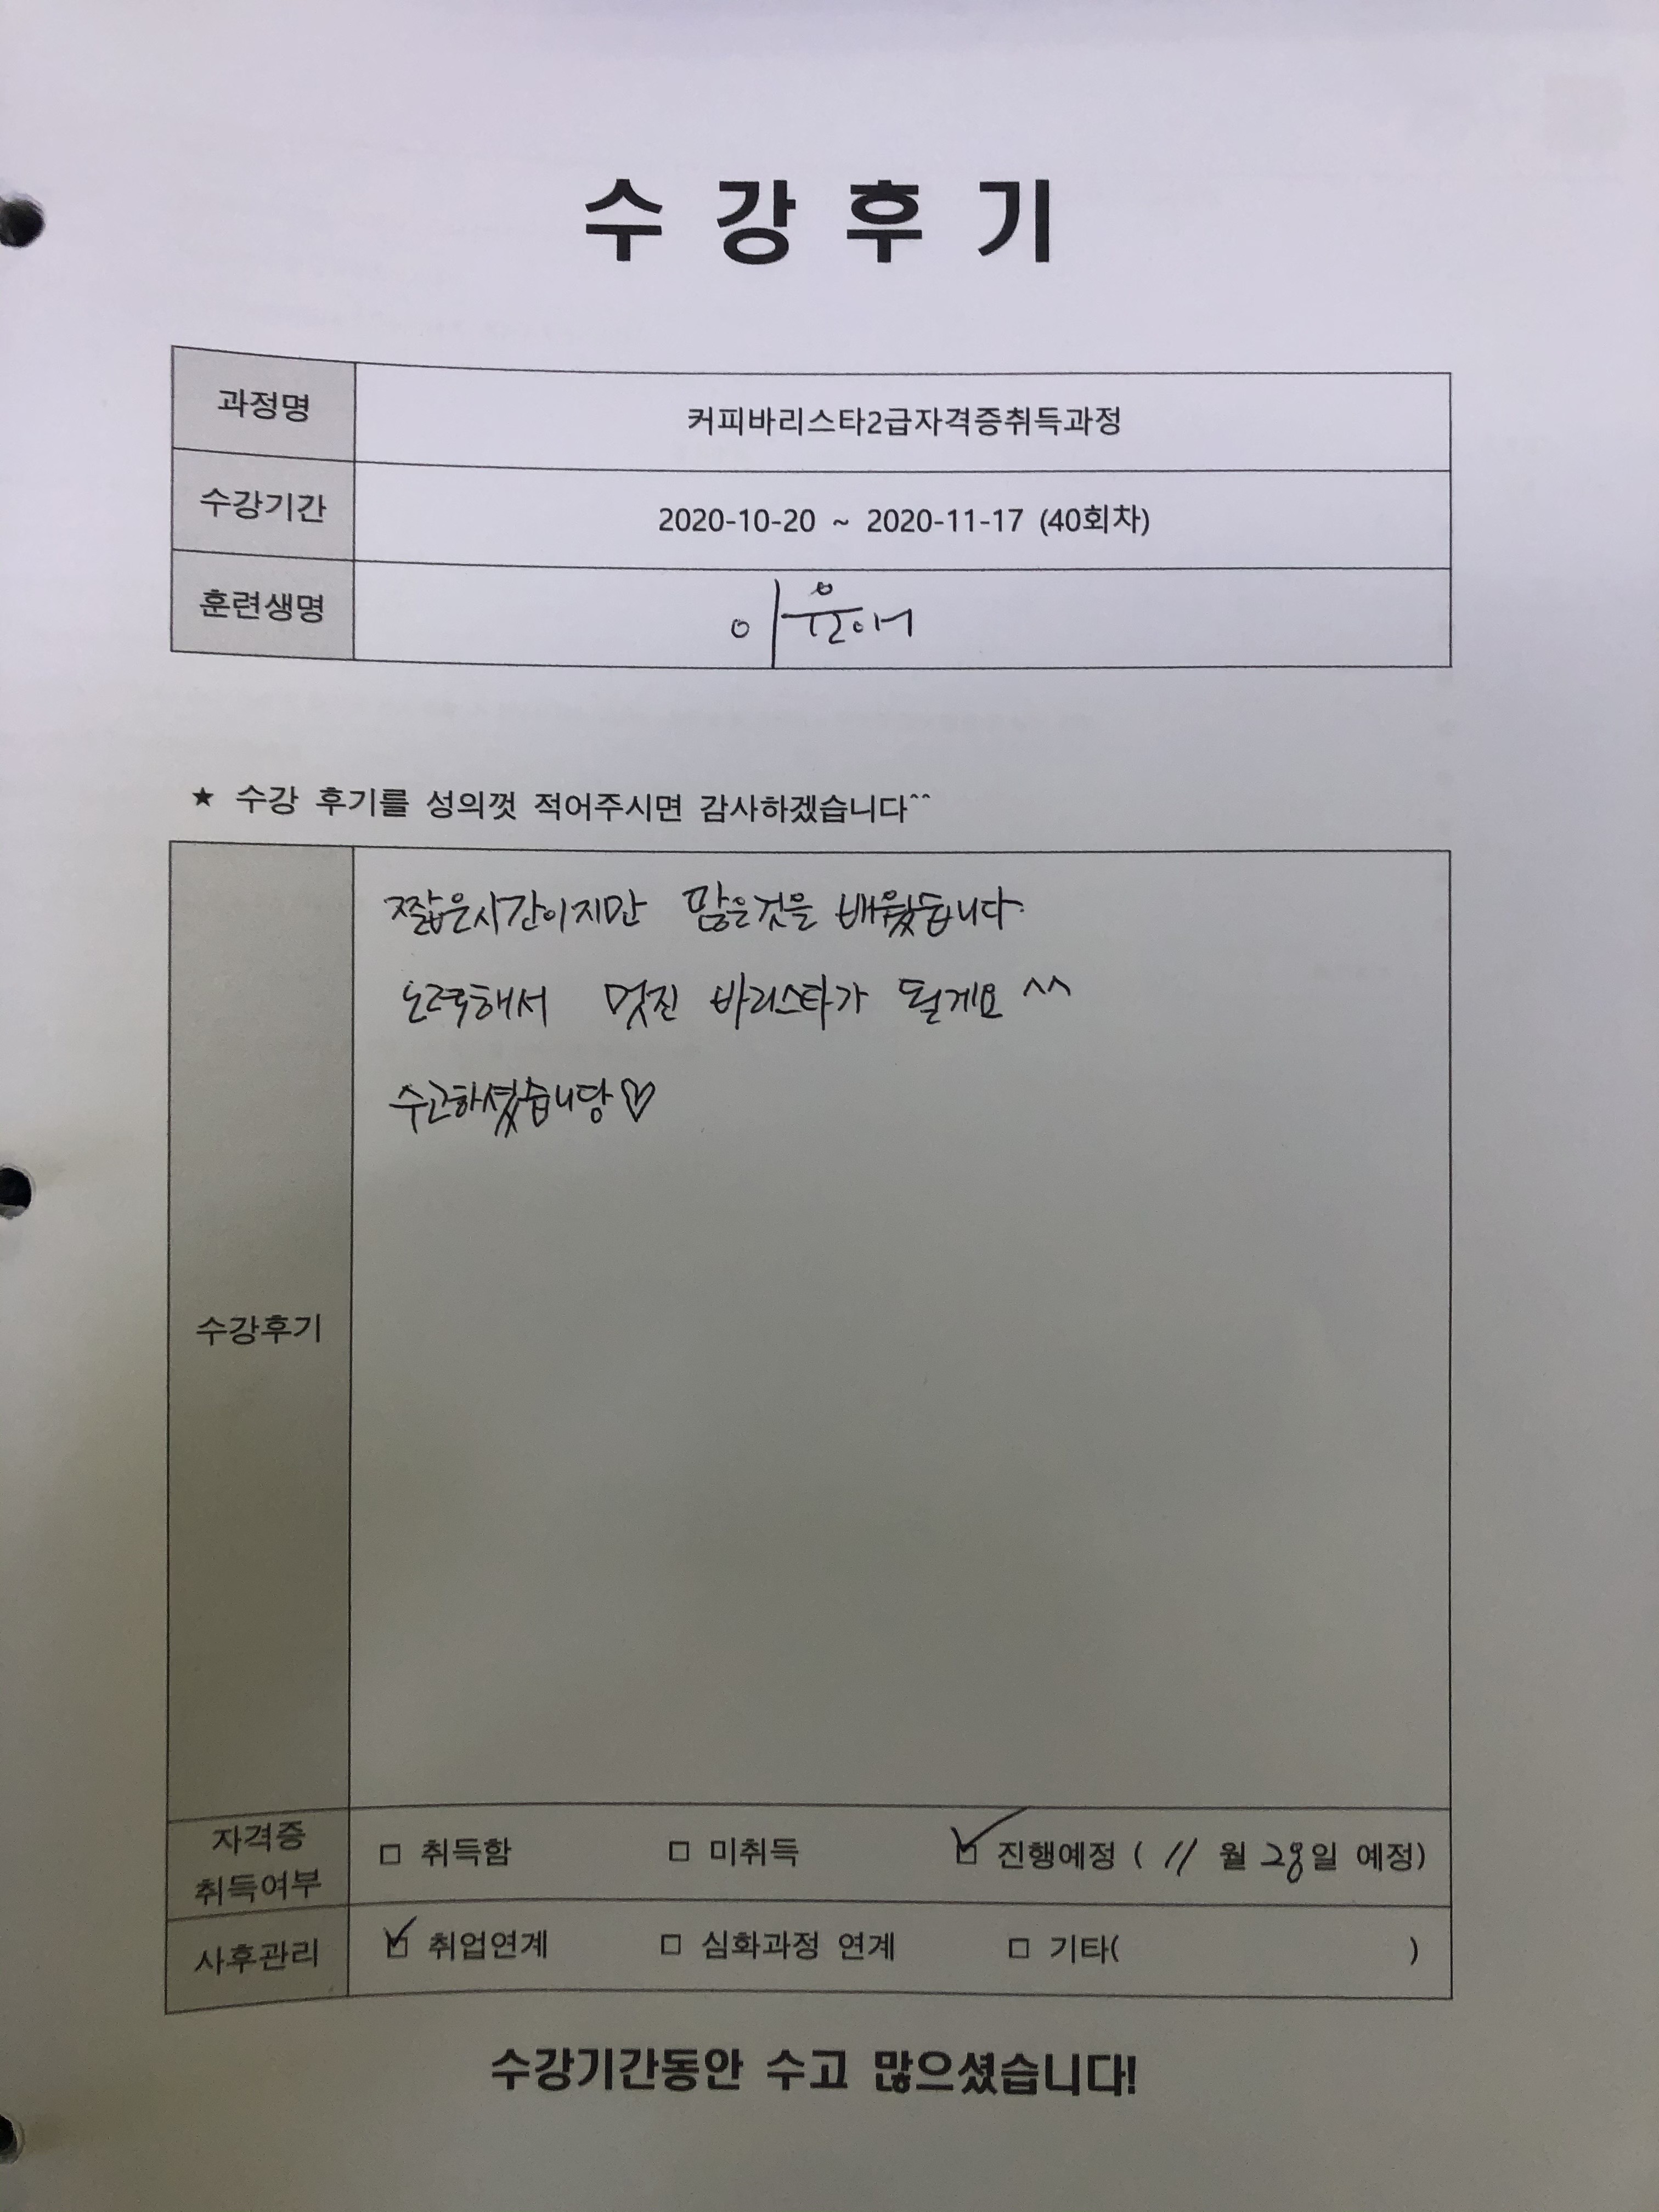 수 강 후 기
과정명 커피바리스타2급자격증취득과정
수강기간 2020-10-20 ~ 2020-11-17 (40회차)
훈련생명 이윤애
★ 수강 후기를 성의껏 적어주시면 감사하겠습니다^^
짧은시간이지만 많은것을 배웠습니다.
노력해서 멋진 바리스타가 될게요 ^^
수고하셨습니당♡
수강후기
자격증
취득여부 □ 취득함 □ 미취득 ☑ 진행예정 ( 11 월 28일 예정)
사후관리 ☑ 취업연계 □ 심화과정 연계 □ 기타( )
수강기간동안 수고 많으셨습니다!